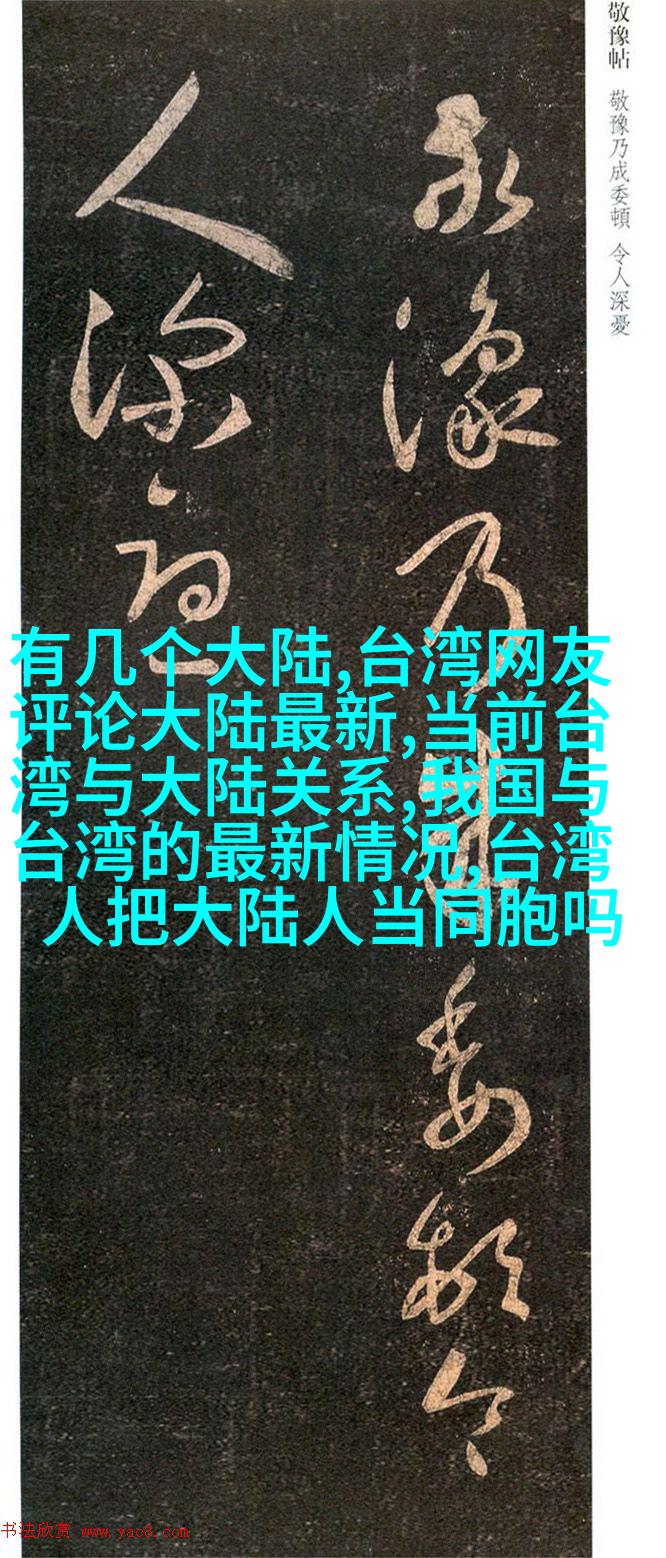 敬豫帖 敬豫乃成委頓 令人深憂
敬豫乃成委頓令
人深憂
有几个大陆,台湾网友
评论大陆最新,当前台
湾与大陆关系,我国与
台湾的最新情况,台湾
人把大陆人当同胞吗
书法欣赏 www.yac8.com